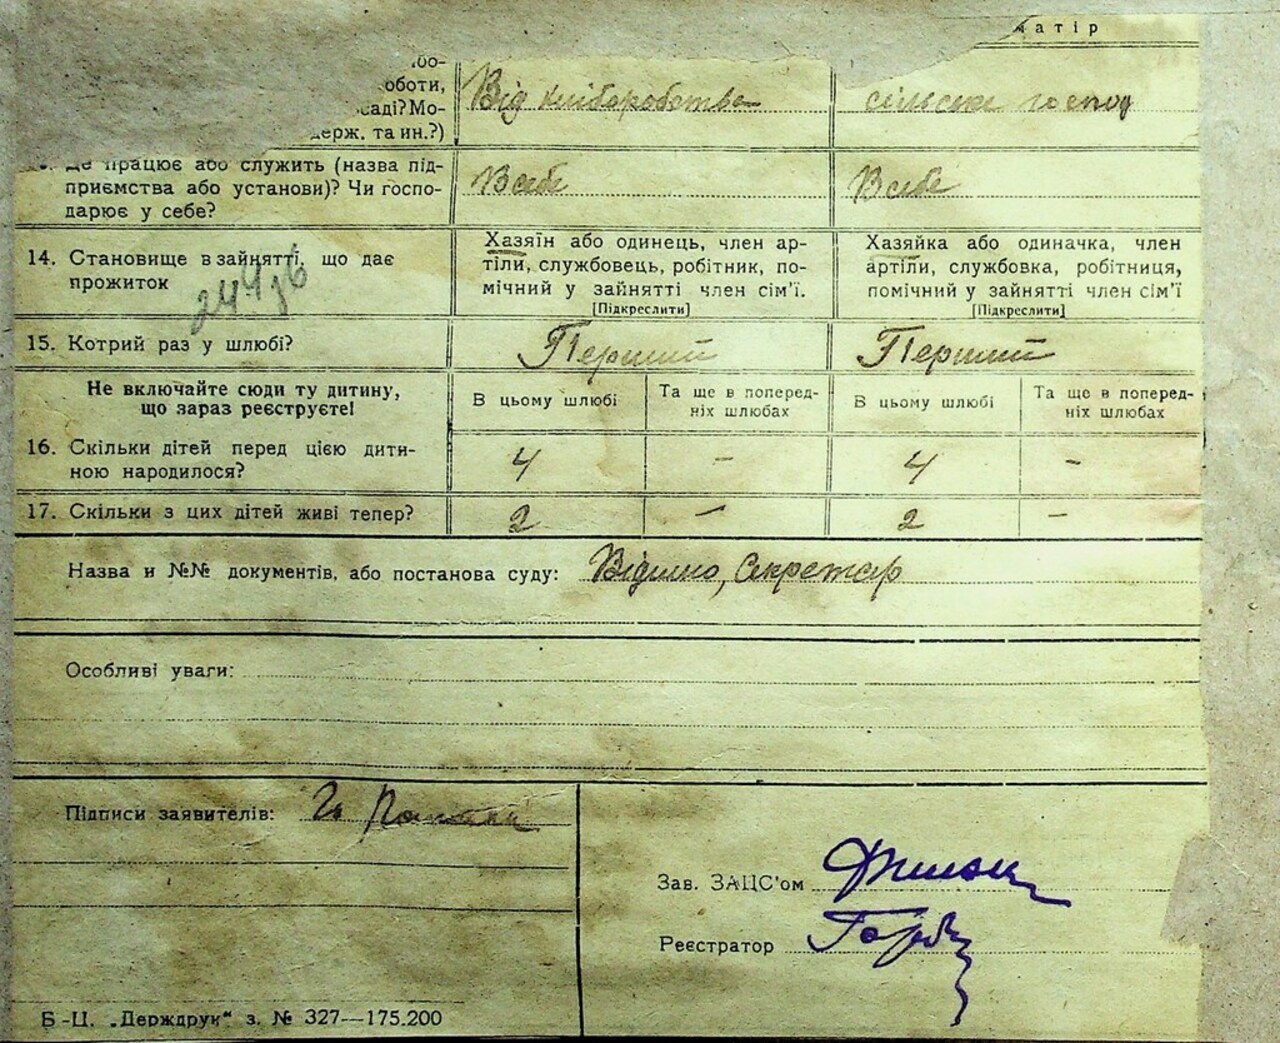 матір
оботи,
саді? Мо-
держ. та ин.?)
Від хліборобства
сільське господ
Де працює або служить (назва під-
приємства або установи)? Чи госпо-
дарює у себе?
В себе
В себе
14. Становище в зайнятті, що дає
прожиток
Хазяїн або одинець, член ар-
тіли, службовець, робітник, по-
мічний у зайнятті член сім'ї.
[Підкреслити]
Хазяйка або одиначка, член
артіли, службовка, робітниця,
помічний у зайнятті член сім'ї
[Підкреслити]
15. Котрий раз у шлюбі?
Перший
Перший
Не включайте сюди ту дитину,
що зараз реєструєте!
В цьому шлюбі
Та ще в поперед-
ніх шлюбах
В цьому шлюбі
Та ще в поперед-
ніх шлюбах
16. Скільки дітей перед цією дити-
ною народилося?
4
–
4
–
17. Скільки з цих дітей живі тепер?
2
–
2
–
Назва и №№ документів, або постанова суду: Відимо, Секретар
Особливі уваги:
Підписи заявителів:
Зав. ЗАЦС'ом
Реєстратор
Б-Ц. „Держдрук" з. № 327—175.200